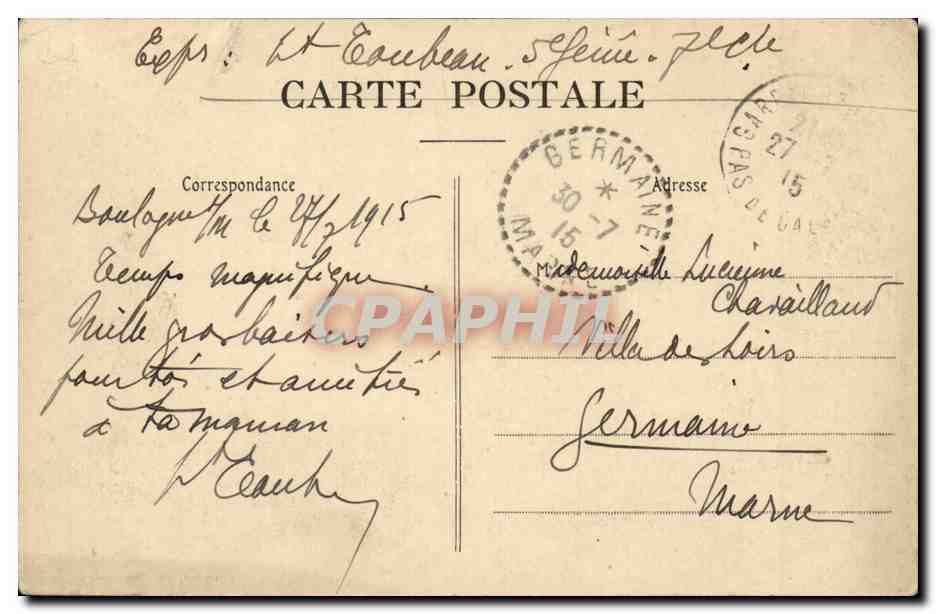 Expr : Lt Toubeau. 5e Génie. 7e Cie
CARTE POSTALE
Correspondance
Boulogne s/M le 27/7 1915
Temps magnifique.
Mille gros baisers
pour toi et amitiés
à ta maman
Adresse
Mademoiselle Lucienne
Chavaillaud
Villa des Loirs
Germaine
Marne
GERMAINE
30 -7
15
MARNE
27
15
PAS DE CALAIS
CPAPHIL